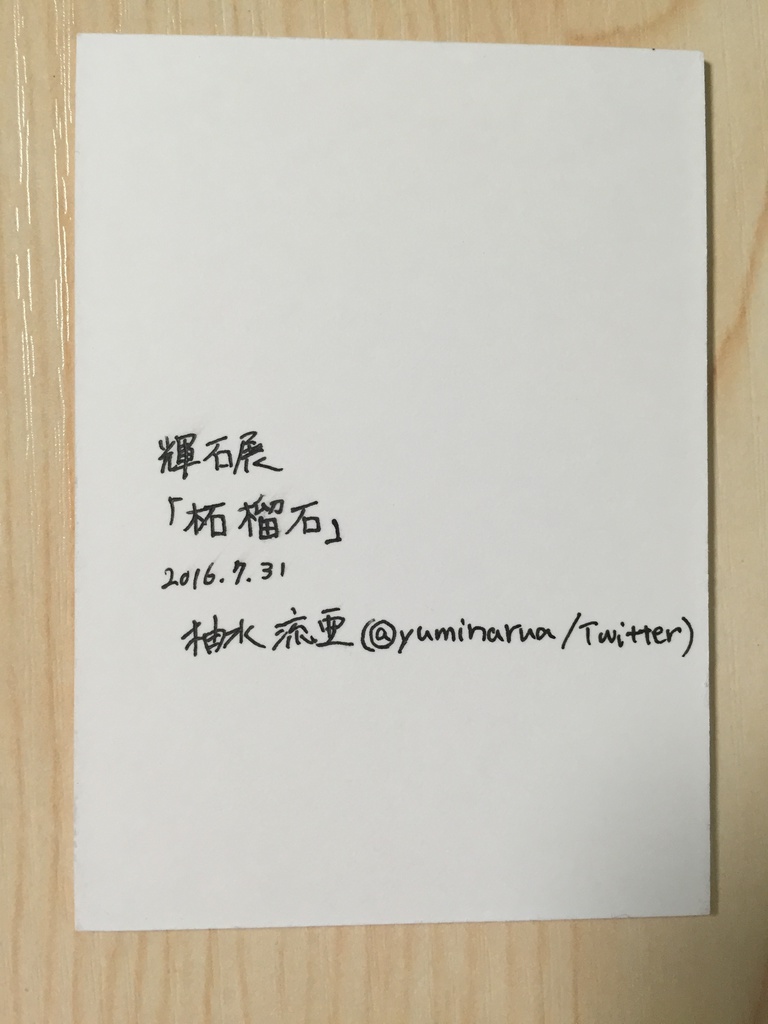 輝石展
「柘榴石」
2016.7.31
柚水 流亜(@yuminarua/Twitter)